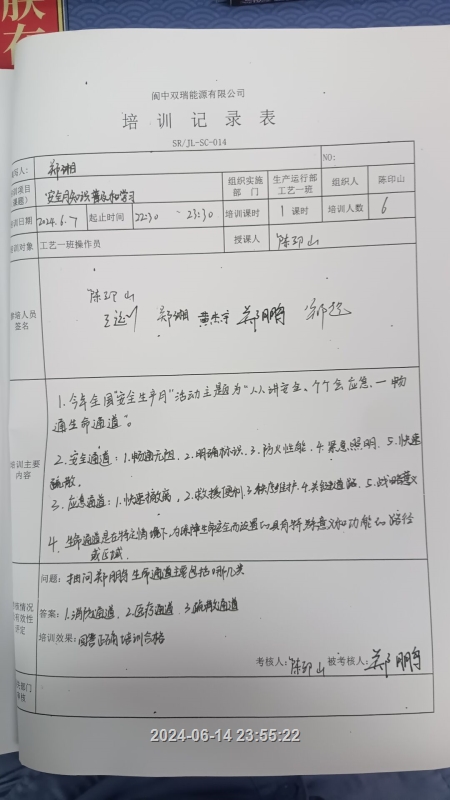 阆中双瑞能源有限公司
培训记录表
SR/JL-SC-014
填写人: 郑湘 NO:
培训项目(课题) 安全月知识普及和学习 组织实施部门 生产运行部工艺一班 组织人 陈印山
培训日期 2024.6.7 起止时间 22:30 ~23:30 培训课时 1 课时 培训人数 6
培训对象 工艺一班操作员 授课人 陈印山
参培人员签名
陈印山
郑湘 黄杰宇 郑鹏
培训主要内容
1.今年全国"安全生产月"活动主题为"人人讲安全、个个会应急、一畅
通生命通道"。
2.安全通道:1.畅通无阻,2.明确标识,3.防火性能,4.紧急照明,5.快速
疏散。
3.应急通道:1.快速撤离,2.救援便利,3.秩序维护,4.关键通路,5.战略意义
4.生命通道是在特定情境下,为保障生命安全而设置的具有特殊意义和功能的路径
或区域.
问题:抽问郑鹏 生命通道主要包括哪几类
答案:1.消防通道,2.医疗通道 3.疏散通道
培训效果:回答正确 培训合格
考核人:陈印山 被考核人:郑鹏
2024-06-14 23:55:22